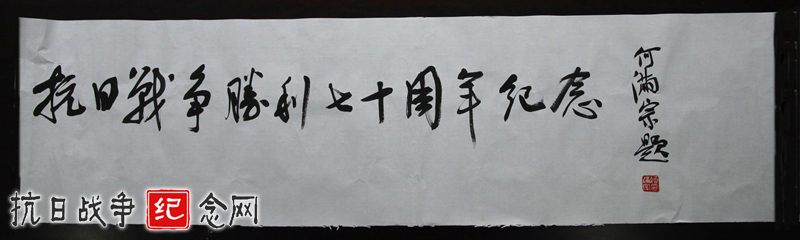 抗日戰争勝利七十周年纪念
何满宗题
抗日战争纪念网